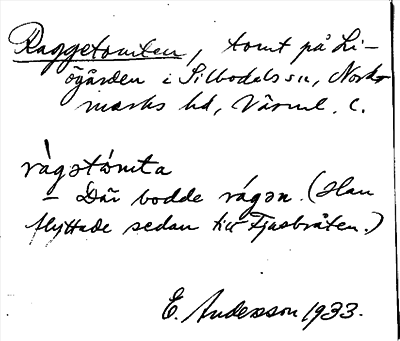 Raggetomten, tomt på Li-
ögården i Silbodals sn, Nord-
marks hd, Värml. l.
vágətómta
– Där bodde vágən. (Han
flyttade sedan till Fjusbråten.)
E. Andersson 1933.